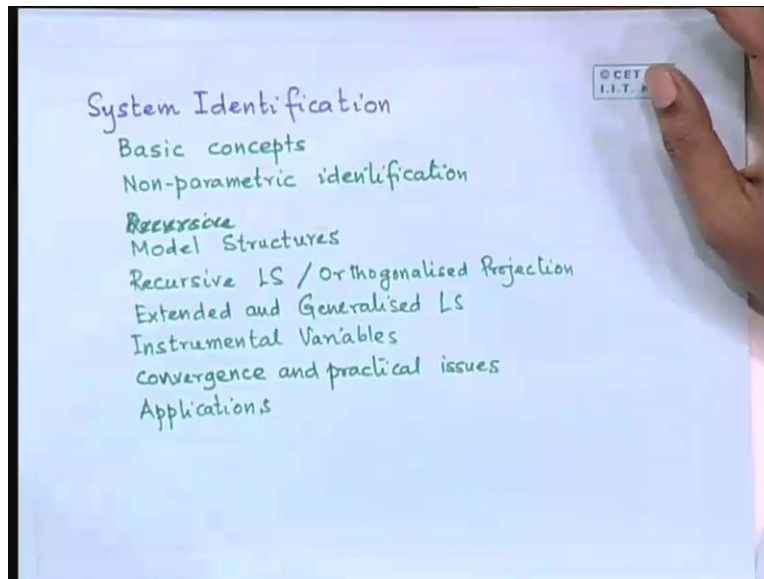 © CET
I.I.T.
System Identification
Basic concepts
Non-parametric identification
Recursive
Model Structures
Recursive LS / Orthogonalised Projection
Extended and Generalised LS
Instrumental Variables
Convergence and practical issues
Applications